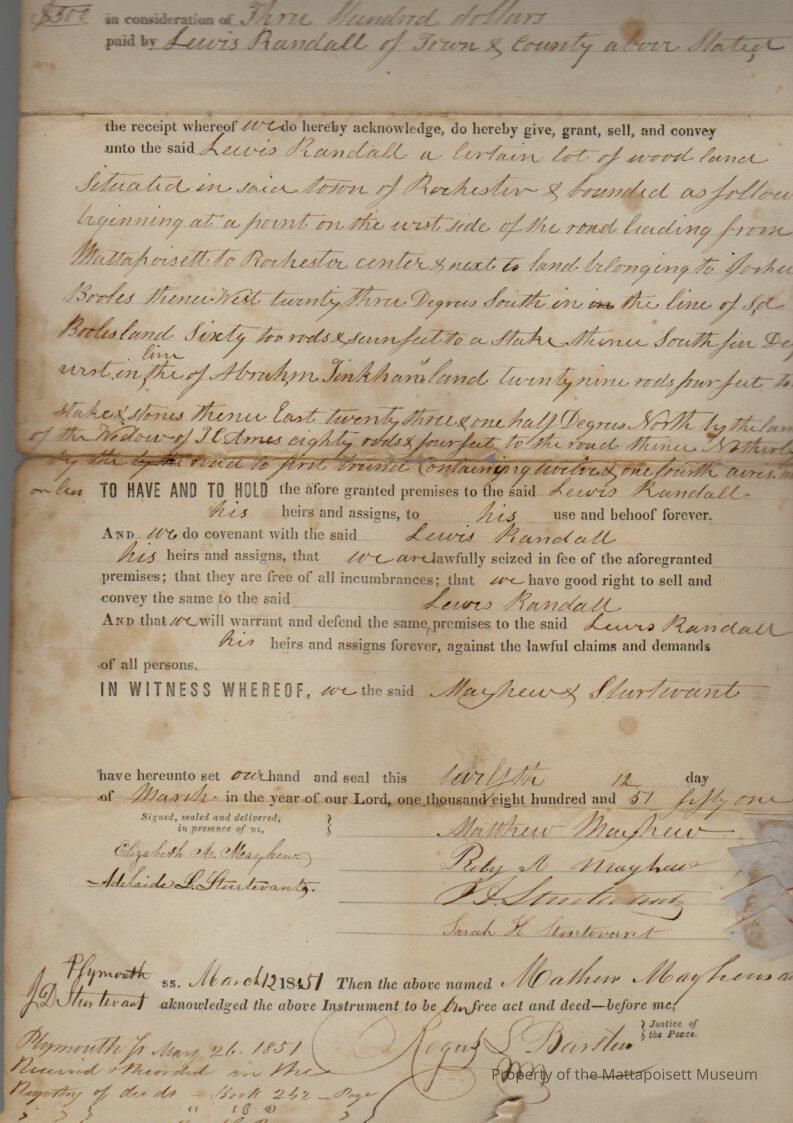 $300 in consideration of Three Hundred dollars
paid by Lewis Randall of Town & County above Stated
the receipt whereof we do hereby acknowledge, do hereby give, grant, sell, and convey
unto the said Lewis Randall a certain lot of wood land
situated in said town of Rochester & bounded as follow
beginning at a point on the west side of the road leading from
Mattapoisett to Rochester center & next to land belonging to
Booles thence West twenty three Degrees South in in the line of Sd
Booles land Sixty two rods & seven feet to a stake thence South
west in the line of Abrahm Tinkham's land twenty nine rods four feet to
stake & stones thence East twenty three & one half Degrees North by the
of the Widow of Ames eighty rods & four feet to the road thence
by the road to first bound Containing twelve & one fourth acres
or less TO HAVE AND TO HOLD the afore granted premises to the said Lewis Randall
his heirs and assigns, to his use and behoof forever.
AND we do covenant with the said Lewis Randall
his heirs and assigns, that we are lawfully seized in fee of the aforegranted
premises; that they are free of all incumbrances; that we have good right to sell and
convey the same to the said Lewis Randall
AND that we will warrant and defend the same premises to the said Lewis Randall
his heirs and assigns forever, against the lawful claims and demands
of all persons.
IN WITNESS WHEREOF, we the said Mayhew & Sturtevant
have hereunto set our hand and seal this twelfth 12 day
of March in the year of our Lord, one thousand eight hundred and 51 fifty one
Signed, sealed and delivered,
in presence of us,
Elizabeth A. Mayhew
Adelaide L. Sturtevant
Matthew Mayhew
A Mayhew
Sarah H Sturtevant
Plymouth ss. March 12 1851 Then the above named Mathew Mayhew
J D Sturtevant aknowledged the above Instrument to be free act and deed—before me,
Barstow Justice of
the Peace.
Plymouth ss May 26. 1851
Received & Recorded in the
Registry of deeds Book 242 Page
Property of the Mattapoisett Museum